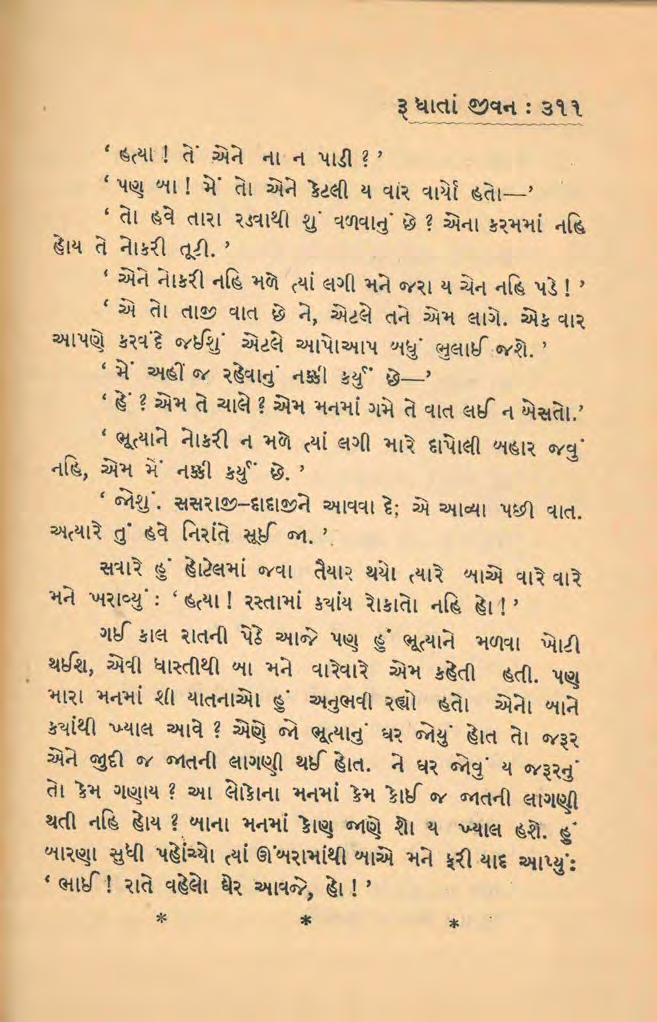 રૂ ધાતાં જીવન : ૩૧૧
‘ હત્યા ! તેં એને ના ન પાડી ? ’
‘ પણ બા ! મેં તો એને કેટલી ય વાર વાર્યો હતો—’
‘ તો હવે તારા રડવાથી શું વળવાનું છે ? એના કરમમાં નહિ
હોય તે નોકરી તૂટી. ’
‘ એને નોકરી નહિ મળે ત્યાં લગી મને જરા ય ચેન નહિ પડે ! ’
‘ એ તો તાજી વાત છે ને, એટલે તને એમ લાગે. એક વાર
આપણે કરવંદે જઈશું એટલે આપોઆપ બધું ભુલાઈ જશે. ’
‘ મેં અહીં જ રહેવાનું નક્કી કર્યું છે—’
‘ હેં ? એમ તે ચાલે ? એમ મનમાં ગમે તે વાત લઈ ન બેસતો.’
‘ ભૂત્યાને નોકરી ન મળે ત્યાં લગી મારે દાપોલી બહાર જવું
નહિ, એમ મેં નક્કી કર્યું છે. ’
‘ જોશું. સસરાજી–દાદાજીને આવવા દે; એ આવ્યા પછી વાત.
અત્યારે તું હવે નિરાંતે સૂઈ જા. ’
સવારે હું હોટેલમાં જવા તૈયાર થયો ત્યારે બાએ વારે વારે
મને ખરાવ્યું : ‘ હત્યા ! રસ્તામાં ક્યાંય રોકાતો નહિ હો ! ’
ગઈ કાલ રાતની પેઠે આજે પણ હું ભૂત્યાને મળવા ખોટી
થઈશ, એવી ધાસ્તીથી બા મને વારેવારે એમ કહેતી હતી. પણ
મારા મનમાં શી યાતનાઓ હું અનુભવી રહ્યો હતો એનો બાને
ક્યાંથી ખ્યાલ આવે ? એણે જો ભૂત્યાનું ઘર જોયું હોત તો જરૂર
એને જુદી જ જાતની લાગણી થઈ હોત. ને ઘર જોવું ય જરૂરનું
તો કેમ ગણાય ? આ લોકોના મનમાં કેમ કોઈ જ જાતની લાગણી
થતી નહિ હોય ? બાના મનમાં કોણ જાણે શો ય ખ્યાલ હશે. હું
બારણા સુધી પહોંચ્યો ત્યાં ઊંબરામાંથી બાએ મને ફરી યાદ આપ્યું :
‘ ભાઈ ! રાતે વહેલો ઘેર આવજે, હો ! ’
* * *